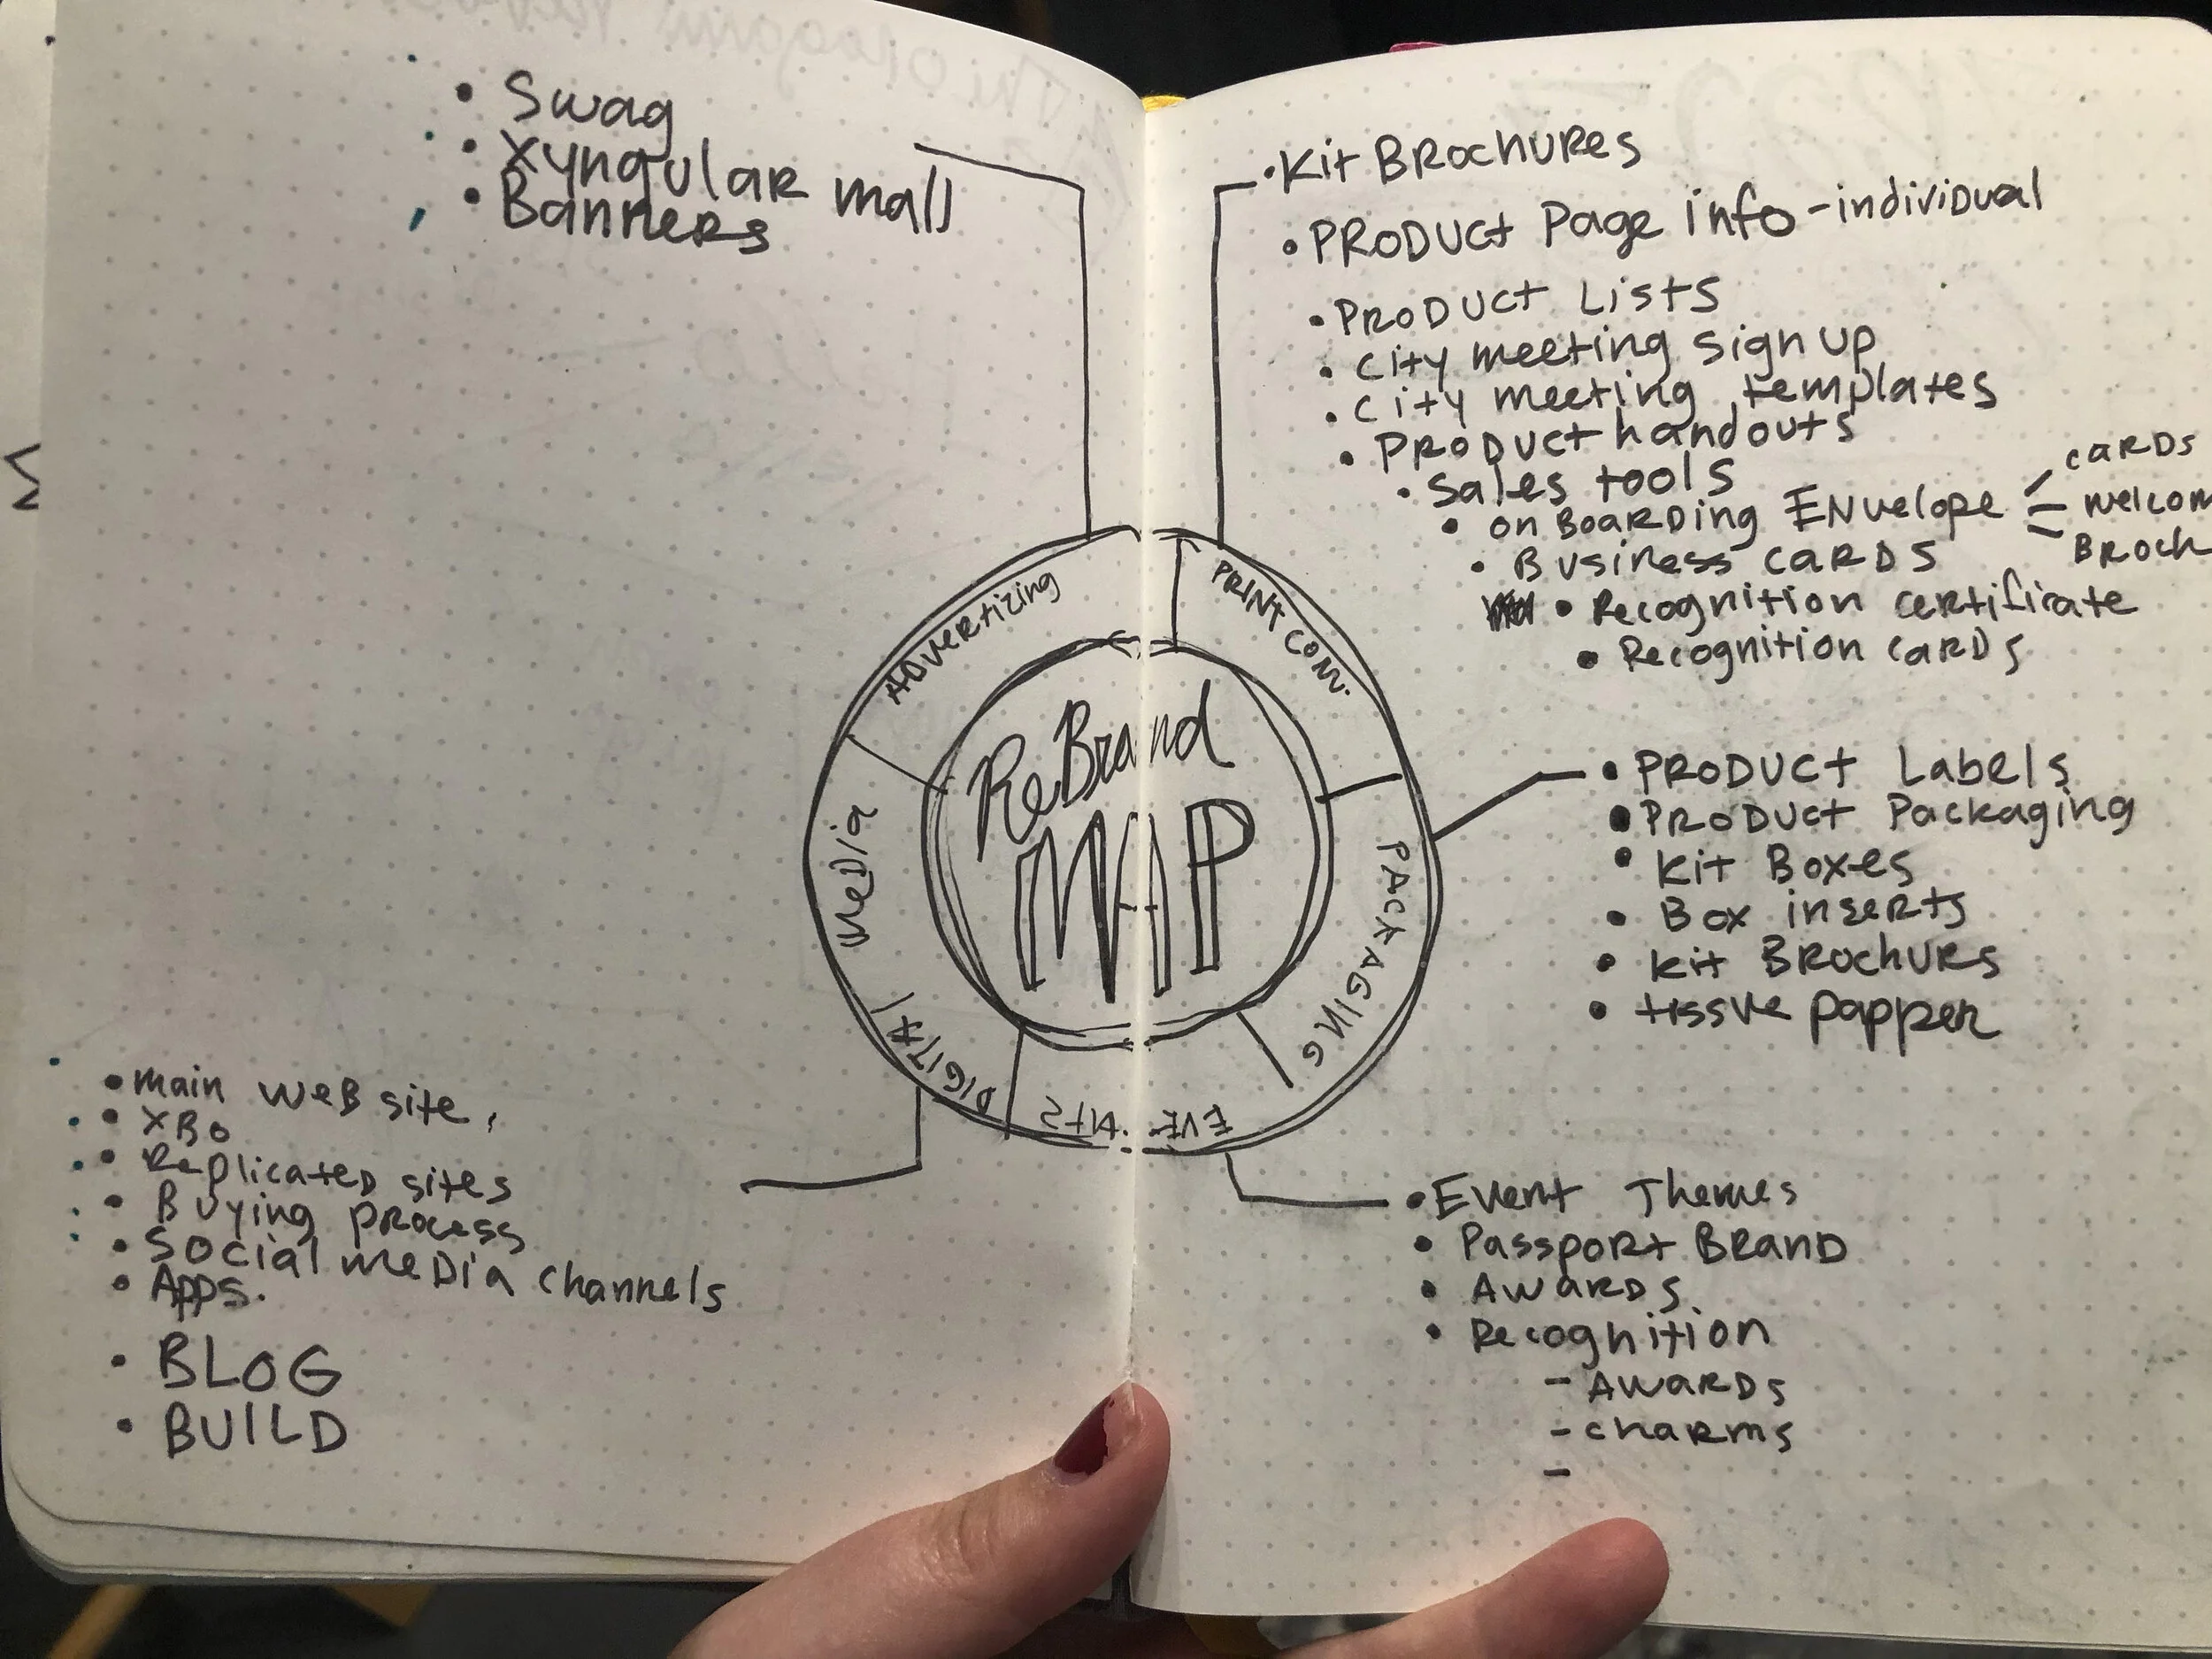 • Swag
• Xyngular mall
• Banners
• Kit Brochures
• Product Page info - individual
• Product Lists
• City meeting sign up
• City meeting templates
• Product handouts
• Sales tools
• onBoarding Envelope
cards
welcom
Broch
• Business cards
• Recognition certificate
• Recognition cards
Advertizing
PRINT COM.
MeDia
DIGITAL
PACKAGING
EVENTS
ReBrand
MAP
• Product Labels
• Product Packaging
• Kit Boxes
• Box inserts
• Kit Brochurs
• tissue papper
• main web site,
• XBO
• Replicated sites
• Buying process
• Social media channels
• Apps.
• BLOG
• BUILD
• Event Themes
• Passport Brand
• Awards
• Recognition
- Awards
- charms
-